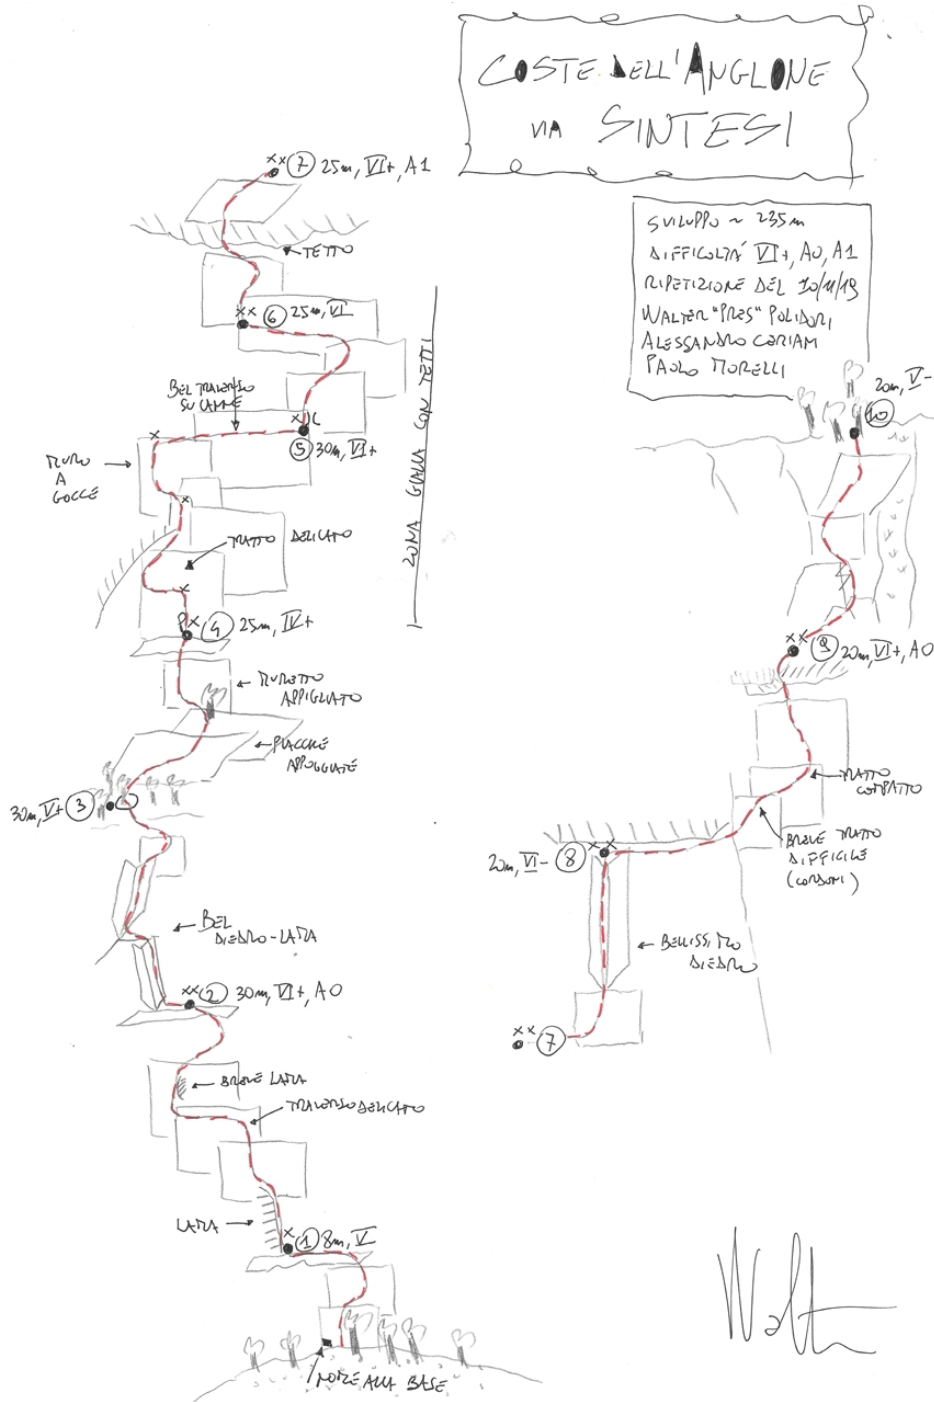 COSTE DELL'ANGLONE
VIA SINTESI
SVILUPPO ~ 235m
DIFFICOLTÁ VI+, A0, A1
RIPETIZIONE DEL 10/11/19
WALTER "PRES" POLIDORI
ALESSANDRO CERIANI
PAOLO MORELLI
xx 7 25m, VI+, A1
TETTO
xx 6 25m, VI
ZONA GIALLA CON TETTI
BEL TRAVERSO
SU CANNE
x
5 30m, VI+
x
MURO
A
GOCCE
x
TRATTO DELICATO
x
x 4 25m, IV+
MURETTO
APPIGLIATO
PLACCHE
APPOGGIATE
30m, V+ 3
BEL
DIEDRO-LAMA
xx 2 30m, VI+, A0
BREVE LAMA
TRAVERSO DELICATO
LAMA
x 1 8m, V
NOME ALLA BASE
20m, V-
10
xx 9 20m, VI+, A0
TRATTO
COMPATTO
BREVE TRATTO
DIFFICILE
(CORDONI)
20m, VI- 8 xx
BELLISSIMO
DIEDRO
xx 7